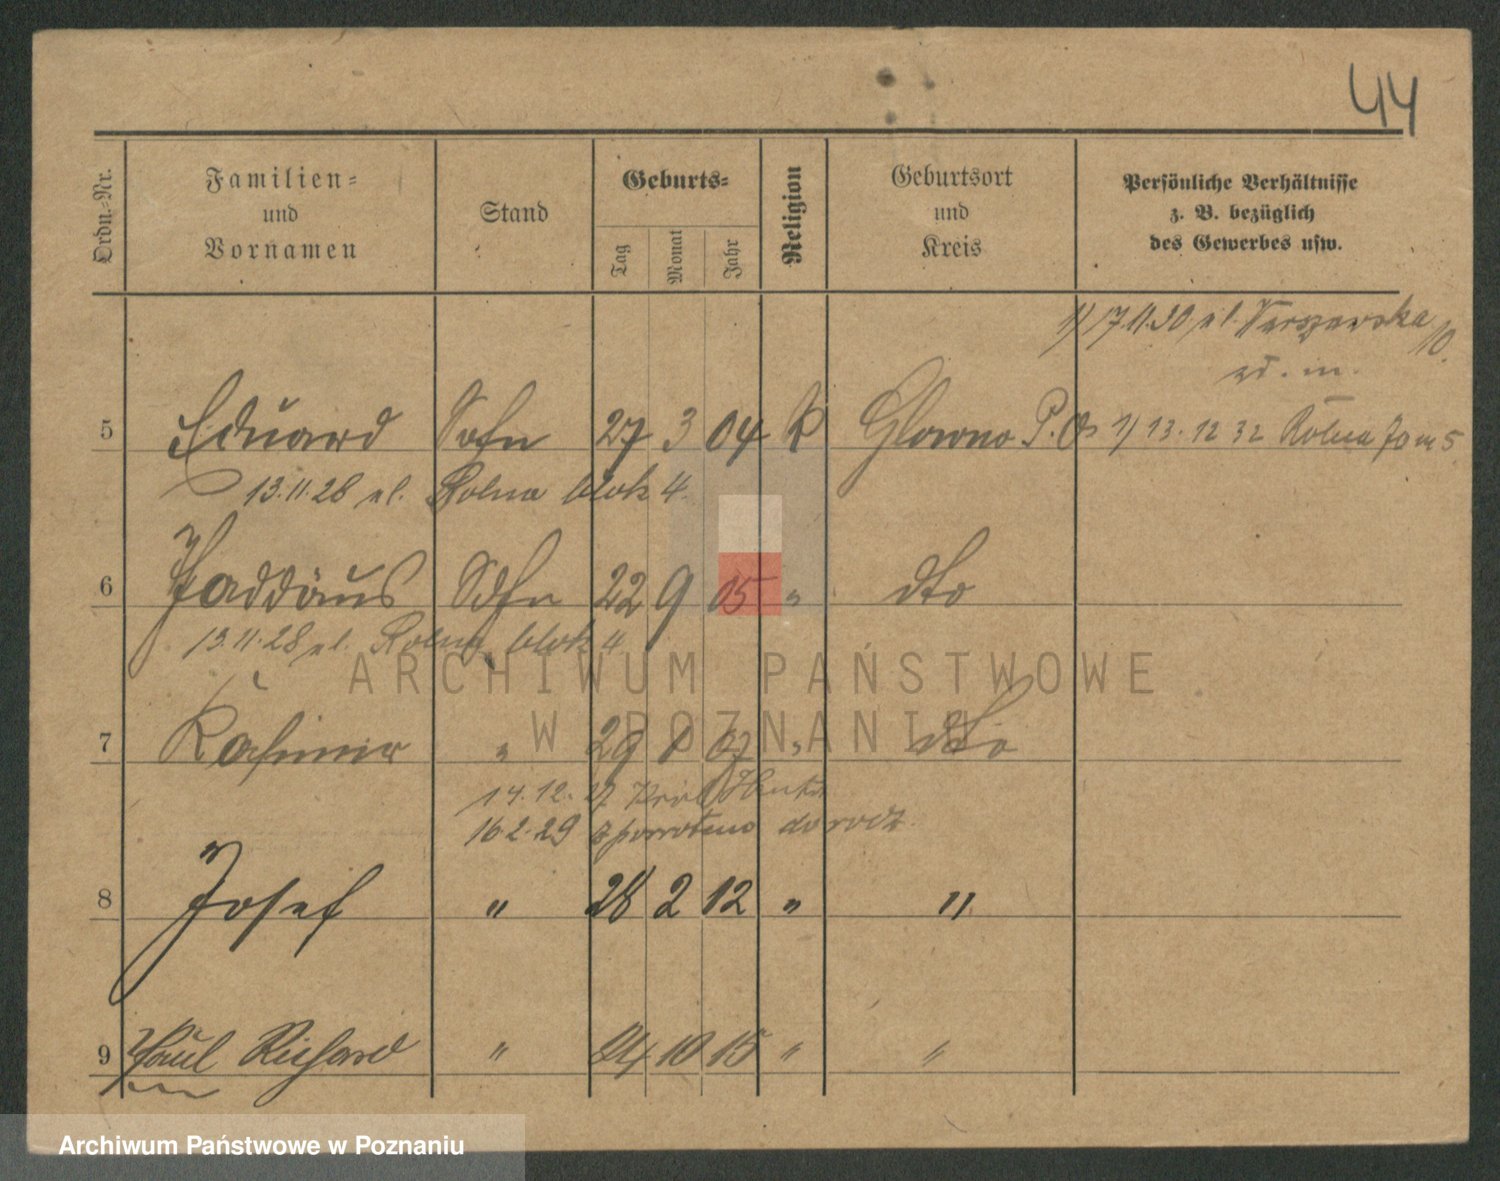 44
Ordn.-Nr.
Familien-
und
Vornamen
Stand
Geburts-
Tag
Monat
Jahr
Religion
Geburtsort
und
Kreis
Persönliche Verhältnisse
z. B. bezüglich
des Gewerbes usw.
1) 17.11.30 ul.
10.
5 Eduard Sohn 27 3 04 K Glowno P. O 1) 13.12 32 Rolna 70 m 5
13.11.28 ul. Rolna blok 4.
6 Taddäus Sohn 22 9 05 " dto
13.11.28 ul. Rolna blok 4
ARCHIWUM PAŃSTWOWE
W POZNANIU
7 Kasimir " 29 1 07 " dto
14.12.27 Król Huta
16.2.29 z powrotem do rodz.
8 Josef " 28 2 12 " "
9 Paul Richard " 24 10 15 " "
Archiwum Państwowe w Poznaniu